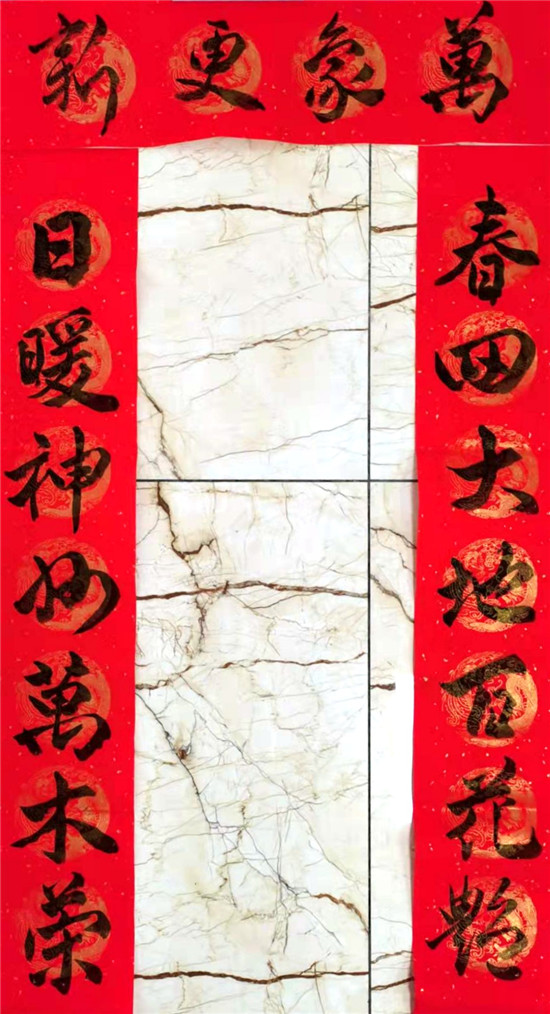 萬象更新
春回大地百花艷
日暖神州萬木荣